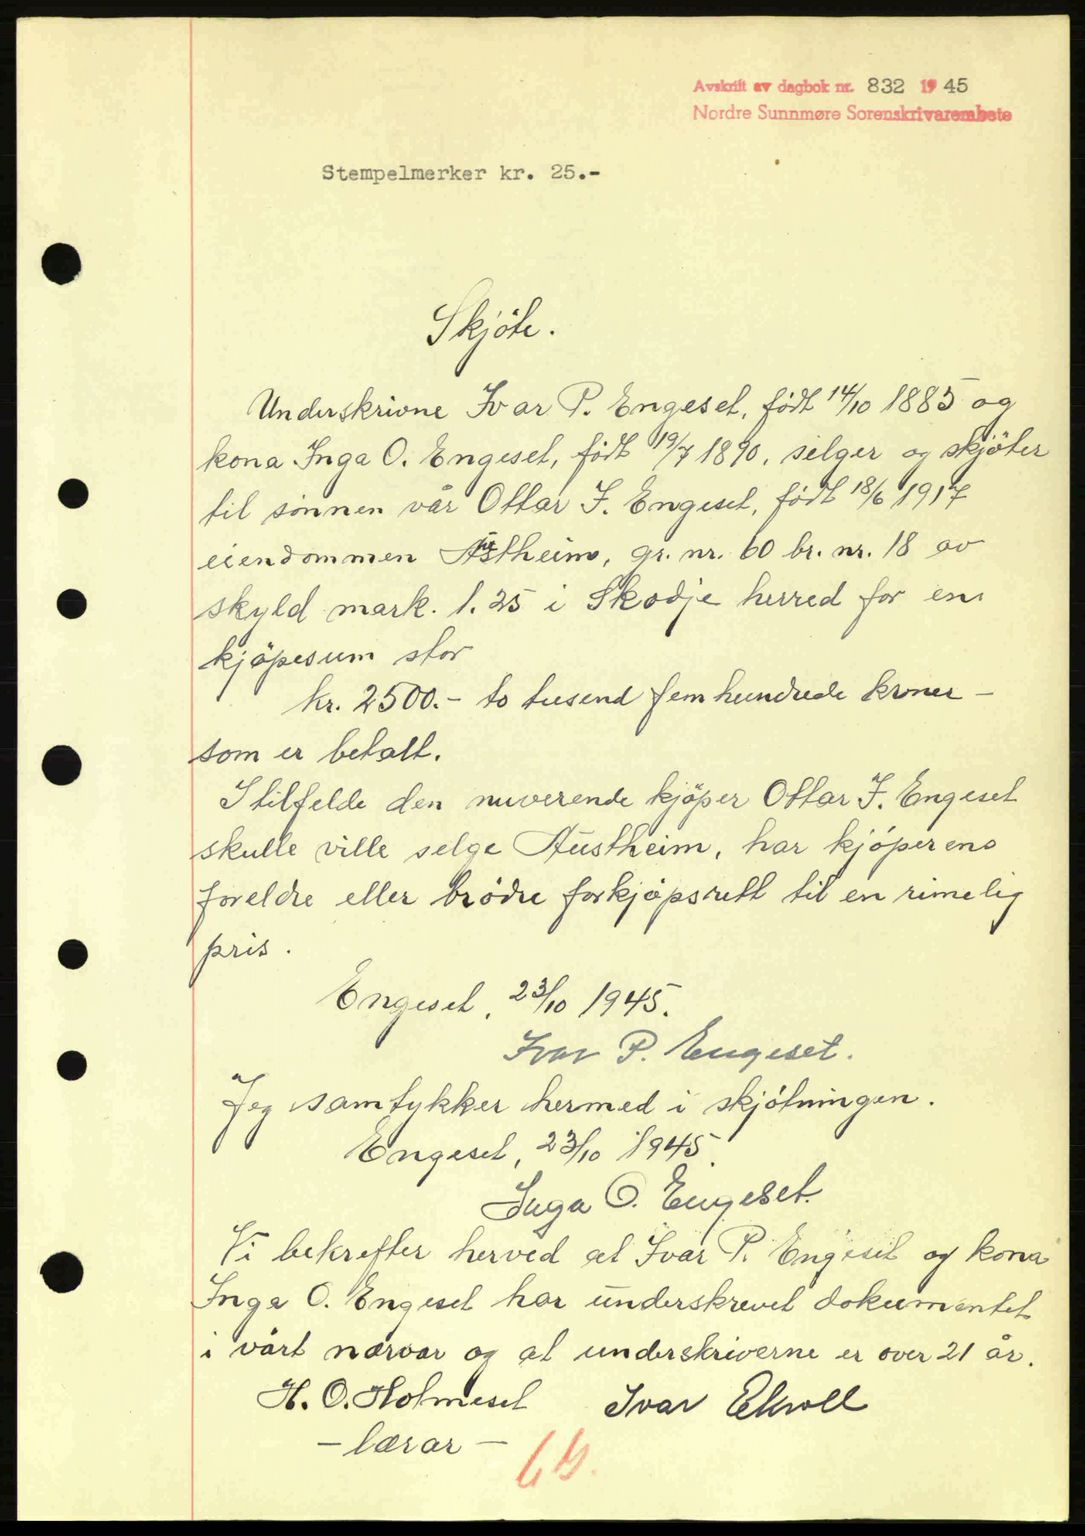 Avskrift av dagbok nr. 832 1945
Nordre Sunnmøre Sorenskrivarembete
Stempelmerker kr. 25.-
Skjöte.
Underskrivne Ivar P. Engeset, født 14/10 1885 og
kona Inga O. Engeset, født 19/7 1890, selger og skjöter
til sönnen vår Ottar I. Engeset, født 18/6 1917
eiendommen Austheim, gr. nr. 60 br. nr. 18 av
skyld mark. 1.25 i Skodje herred for en
kjöpesum stor
kr. 2500.- to tusend femhundrede kroner -
som er betalt.
I tilfelde den nuverende kjöper Ottar I. Engeset
skulle ville selge Austheim, har kjöperens
foreldre eller brödre forkjöpsrett til en rimelig
pris.
Engeset, 23/10 1945.
Ivar P. Engeset.
Jeg samtykker hermed i skjötningen.
Engeset, 23/10 1945
Inga O. Engeset.
Vi bekrefter herved at Ivar P. Engeset og kona
Inga O. Engeset har underskrevet dokumentet
i vårt nærvær og at underskriverne er over 21 år.
H. O. Holmeset Ivar Ekroll
- lærar -